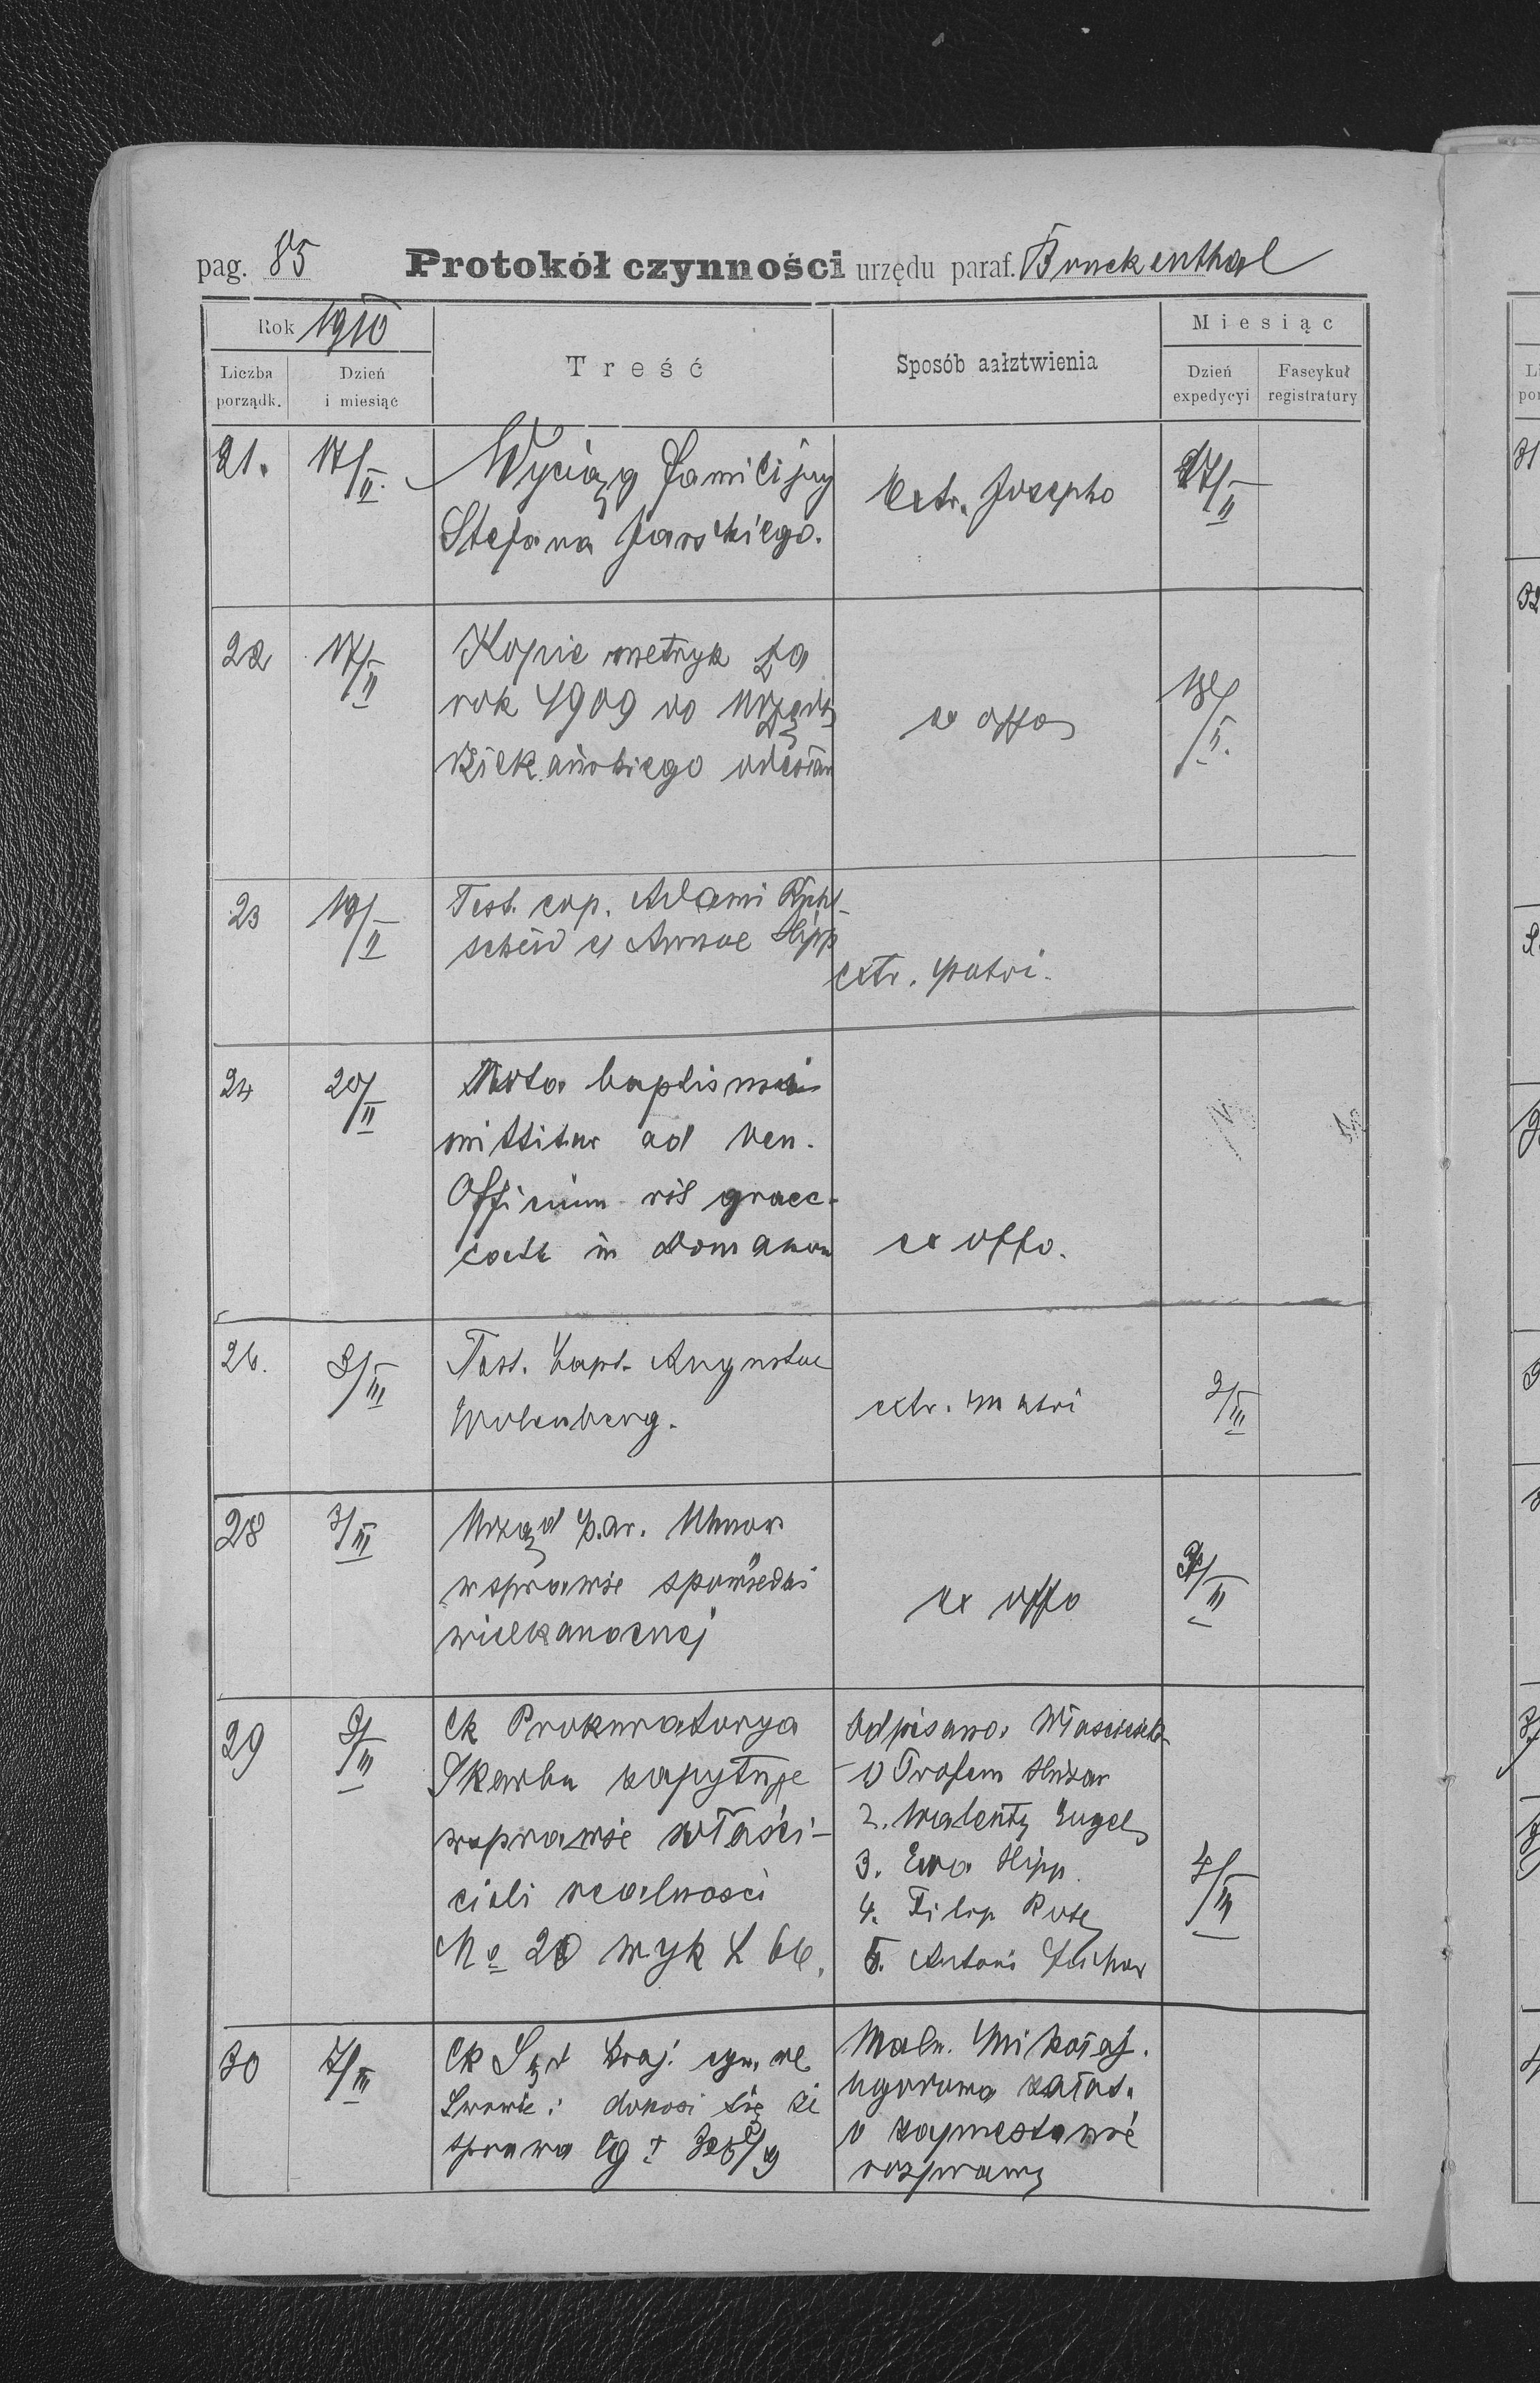 pag. 85 Protokół czynności urzędu paraf. Bruckenthal
Rok 1910
Miesiąc
Liczba porządk.
Dzień i miesiąc
Treść
Sposób aałztwienia
Dzień expedycyi
Fascykuł registratury
21. 17/II. Wyciąg familijny
Stefana Jarskiego.
Extr. Josepho
17/II
22 17/II Kopie metryk za
rok 1909 do Urzędu
Dziekańskiego odesłan
ex offo
18/II.
23 19/II Test. cop. Adami
scheid et Annae Hipp
extr. patri.
24 20/II Nota baptismi
mittitur ad Ven.
Officium rit graec-
cath in
ex offo.
26. 3/III Test. bapt. Augustae
Wolenberg.
extr. matri
3/III
28 3/III Urząd par. Uhnow
w sprawie spowiedzi
wielkanocnej
ex offo
3/III
29 3/III Ck Prokuratorya
Skarbu zapytuje
wsprawie właści-
cieli realności
No 20 wyk L 66.
Odpisano.
1) Trofem Huzar
2. Walenty Engel
3. Ewa Hipp
4. Filip Rote
5. Antoni
4/III
30 7/III Ck Sąd kraj. cyw. we
Lwowie: donosi się że
sprawa Cg I
Małż. Mikołaj.
rozprawy